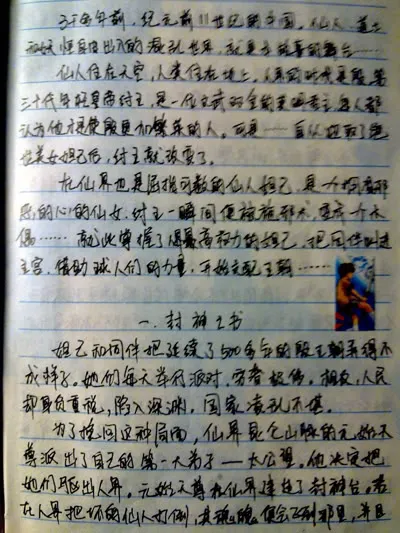 3000多年前,纪元前11世纪的中国。仙人、道士
和妖怪自由出入的混乱世界,就是这故事的舞台……
仙人住在天空,人类住在地上,人间的时代是殷,第
三十代年轻皇帝纣王,是一代文武双全的英明君主,每人都
认为他才是使殷更加繁荣的人。可是……自从迎取了绝
世美女妲己后,纣王就改变了。
在仙界也是屈指可数的仙人妲己,是个拥有邪
恶的心的仙女,纣王一瞬间便被施邪术,变成个木
偶……就此掌握了最高权力的妲己,把同伴叫进
王宫,借助她人们的力量,开始支配王朝……
一、封神之书
妲己和同伴把延续了500多年的殷王朝弄得不
成样子。她们每天举行派对,穷奢极侈。相反,人民
却身负重税,陷入深渊。国家凌乱不堪。
为了挽回这种局面,仙界昆仑山脉的元始天
尊派出了自己的第一大弟子——太公望。他决定把
她们驱出人界。元始天尊在仙界建造了封神台。若
在人界把坏的仙人打倒,其魂魄便会飞到那里,并且